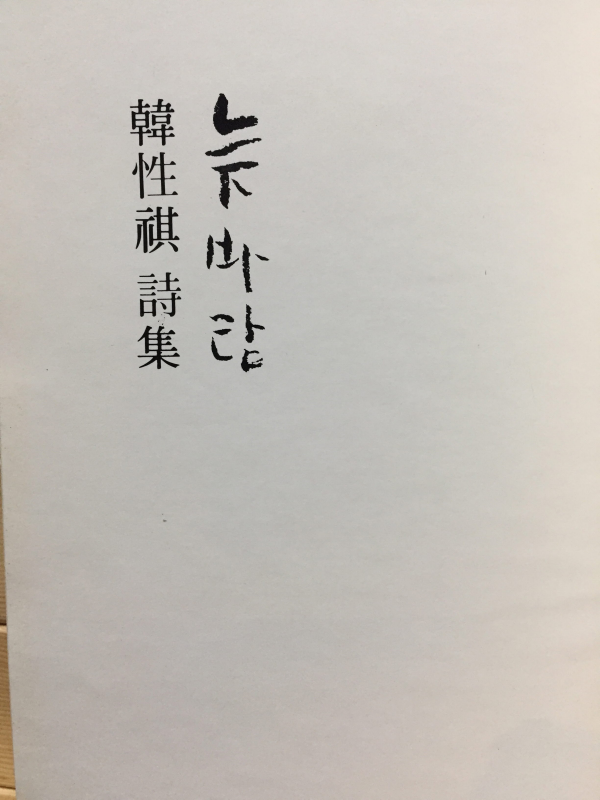 늦바람
韓性祺 詩集